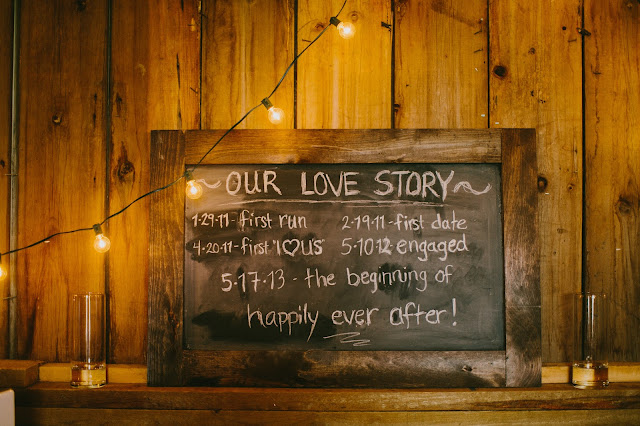 ~ OUR LOVE STORY ~
1·29·11 - first run 2·19·11 - first date
4·20·11 - first "I ♡ U'S" 5·10·12 engaged
5·17·13 - the beginning of
happily ever after!